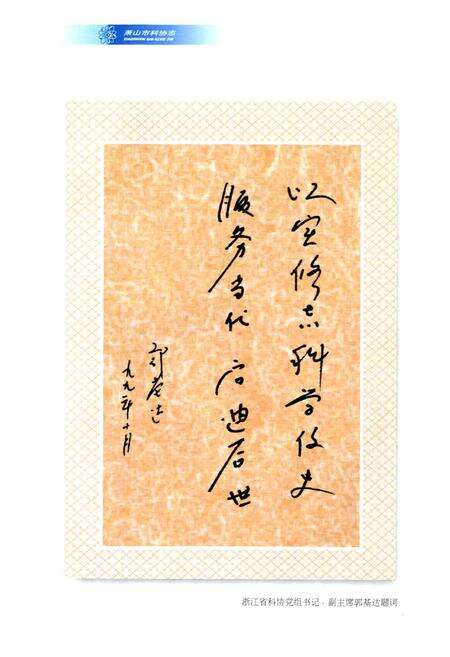 萧山市科协志
以实修志科学作史
服务当代启迪后世
郭基达
一九九二年十月
浙江省科协党组书记、副主席郭基达题词